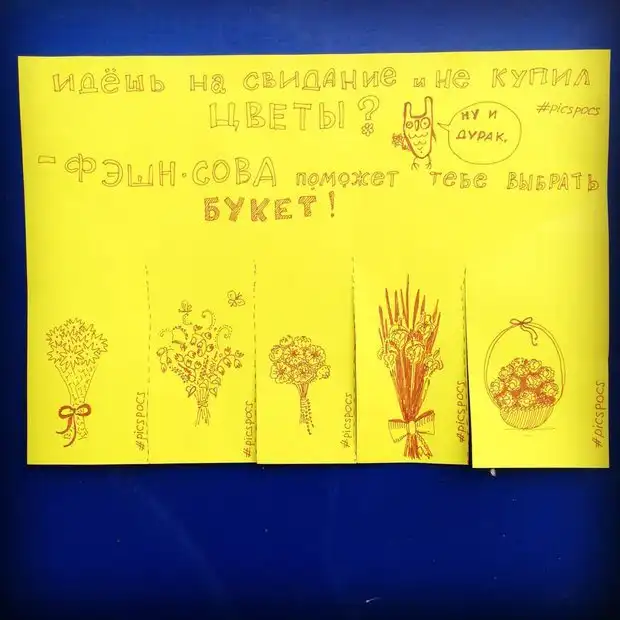 ИДЁШЬ НА СВИДАНИЕ И НЕ КУПИЛ
ЦВЕТЫ?
#picspocs
НУ И
ДУРАК.
- ФЭШН·СОВА ПОМОЖЕТ ТЕБЕ ВЫБРАТЬ
БУКЕТ!
#picspocs
#picspocs
#picspocs
#picspocs
#picspocs